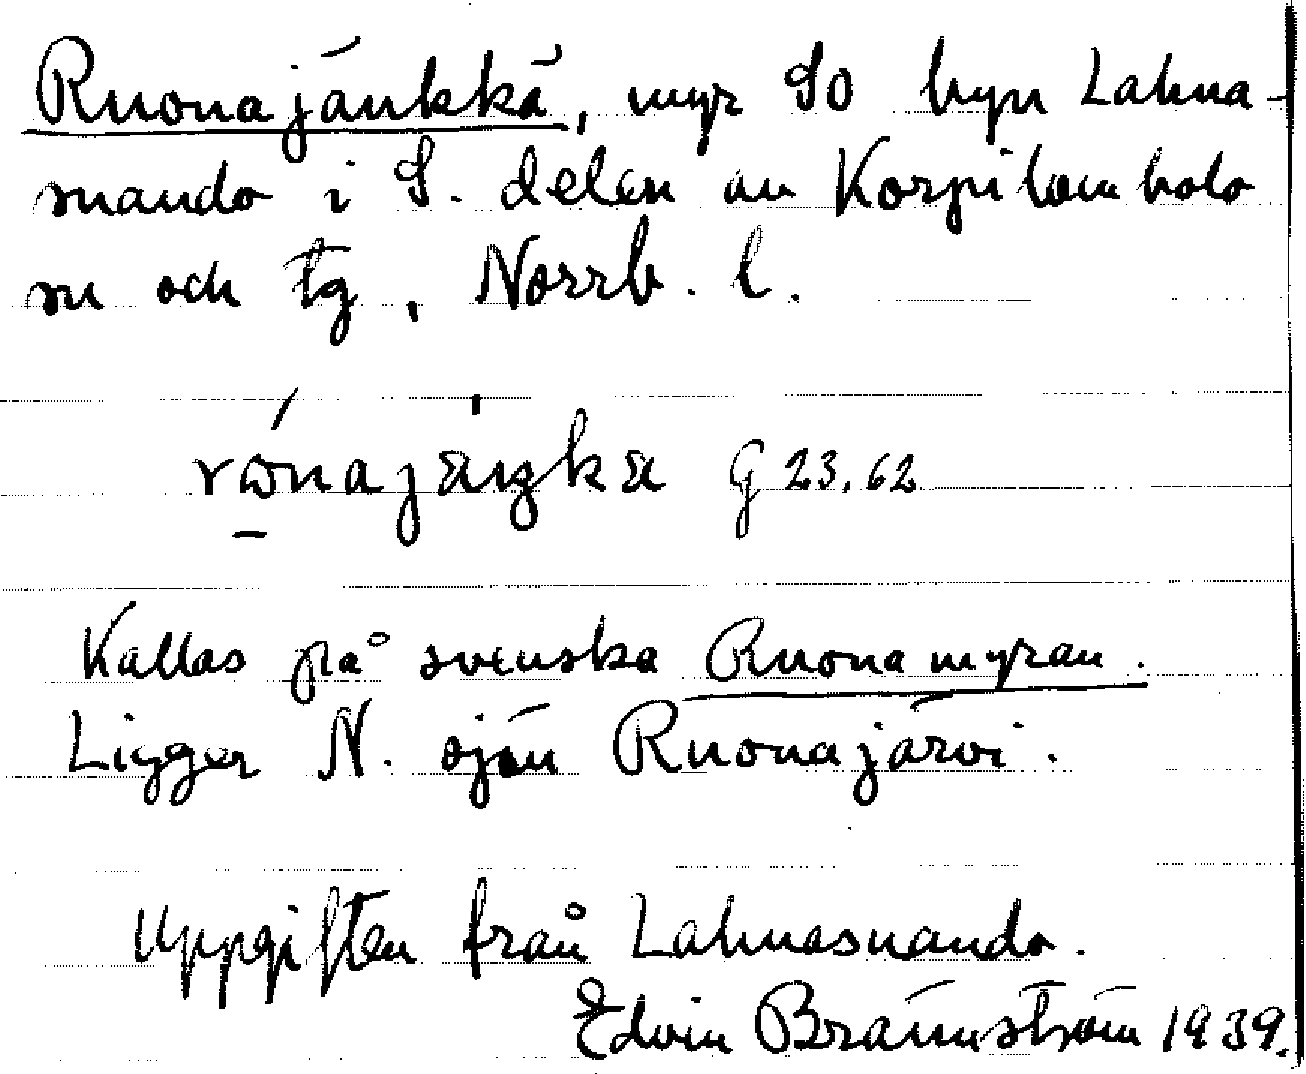 Ruonajänkkä, myr SO byn Lahna-
suando i S. delen av Korpilombolo
sn och tg, Norrb. l.
G 23.62
Kallas på svenska Ruonamyran.
Ligger N. sjön Ruonajärvi.
Uppgiften från Lahnasuando.
Edvin Brännström 1939.